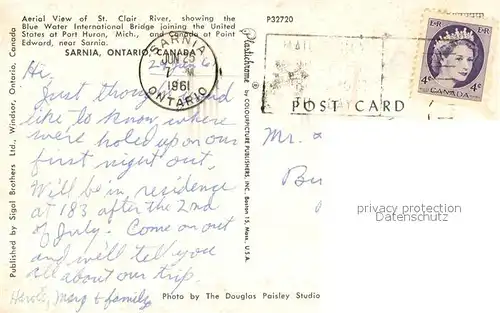 Aerial View of St. Clair River, showing the
Blue Water International Bridge joining the United
States at Port Huron, Mich., and Canada at Point
Edward, near Sarnia.
SARNIA, ONTARIO, CANADA
P32720
SARNIA
JUN 25
PM
1961
ONTARIO
MAIL
POST CARD
E II R
E II R
4c
4c
CANADA
Hi,
Just thought you'd
like to know where
we're holed up on our
first night out.
Will be in residence
at 183 after the 2nd
of July. Come on out
and we'll tell you
all about our trip.
Marg & family
Mr.
Published by Sigal Brothers Ltd., Windsor, Ontario, Canada
Plastichrome ® by COLOURPICTURE PUBLISHERS, INC. Boston 15, Mass. U.S.A.
privacy protection
Datenschutz
Photo by The Douglas Paisley Studio